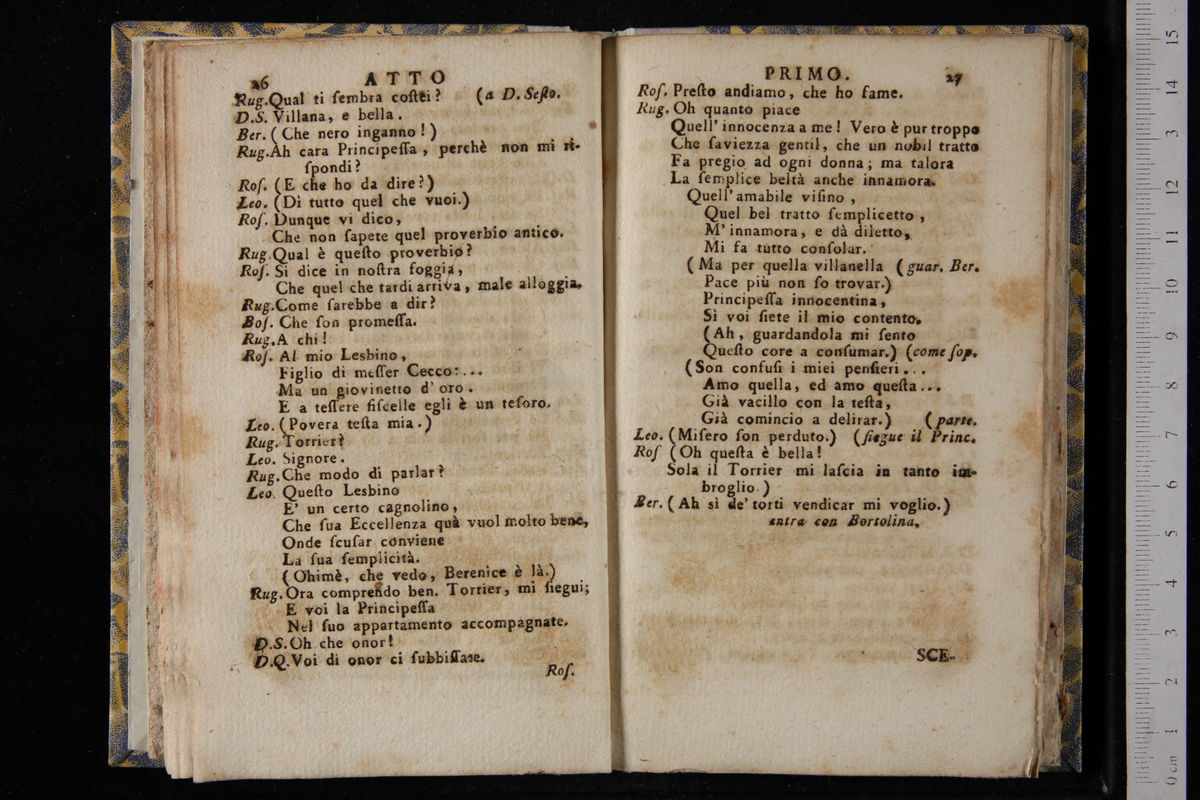 26 ATTO
Rug. Qual ti ſembra coſtei? (a D. Seſto.
D.S. Villana, e bella.
Ber. (Che nero inganno!)
Rug. Ah cara Principeſſa, perchè non mi ri-
ſpondi?
Roſ. (E che ho da dire?)
Leo. (Dì tutto quel che vuoi.)
Roſ. Dunque vi dico,
Che non ſapete quel proverbio antico.
Rug. Qual è queſto proverbio?
Roſ. Si dice in noſtra foggia,
Che quel che tardi arriva, male alloggia.
Rug. Come ſarebbe a dir?
Boſ. Che ſon promeſſa.
Rug. A chi!
Roſ. Al mio Lesbino,
Figlio di meſſer Cecco:...
Ma un giovinetto d'oro.
E a teſſere fiſcelle egli è un teſoro.
Leo. (Povera teſta mia.)
Rug. Torrier?
Leo. Signore.
Rug. Che modo di parlar?
Leo. Queſto Lesbino
E' un certo cagnolino,
Che ſua Eccellenza quà vuol molto bene,
Onde ſcuſar conviene
La ſua ſemplicità.
(Ohimè, che vedo, Berenice è là.)
Rug. Ora comprendo ben. Torrier, mi ſiegui;
E voi la Principeſſa
Nel ſuo appartamento accompagnate.
D.S. Oh che onor!
D.Q. Voi di onor ci ſubbiſſate.
Roſ.
PRIMO. 27
Roſ. Preſto andiamo, che ho fame.
Rug. Oh quanto piace
Quell' innocenza a me! Vero è pur troppo
Che ſaviezza gentil, che un nobil tratto
Fa pregio ad ogni donna; ma talora
La ſemplice beltà anche innamora.
Quell' amabile viſino,
Quel bel tratto ſemplicetto,
M' innamora, e dà diletto,
Mi fa tutto conſolar.
(Ma per quella villanella (guar. Ber.
Pace più non ſo trovar.)
Principeſſa innocentina,
Sì voi ſiete il mio contento.
(Ah, guardandola mi ſento
Queſto core a conſumar.) (come ſop.
(Son confuſi i miei penſieri...
Amo quella, ed amo queſta...
Già vacillo con la teſta,
Già comincio a delirar.) (parte.
Leo. (Miſero ſon perduto.) (ſiegue il Princ.
Roſ (Oh queſta è bella!
Sola il Torrier mi laſcia in tanto im-
broglio.)
Ber. (Ah sì de' torti vendicar mi voglio.)
entra con Bortolina.
SCE-
15
14
13
12
11
10
9
8
7
6
5
4
3
2
1
0 cm